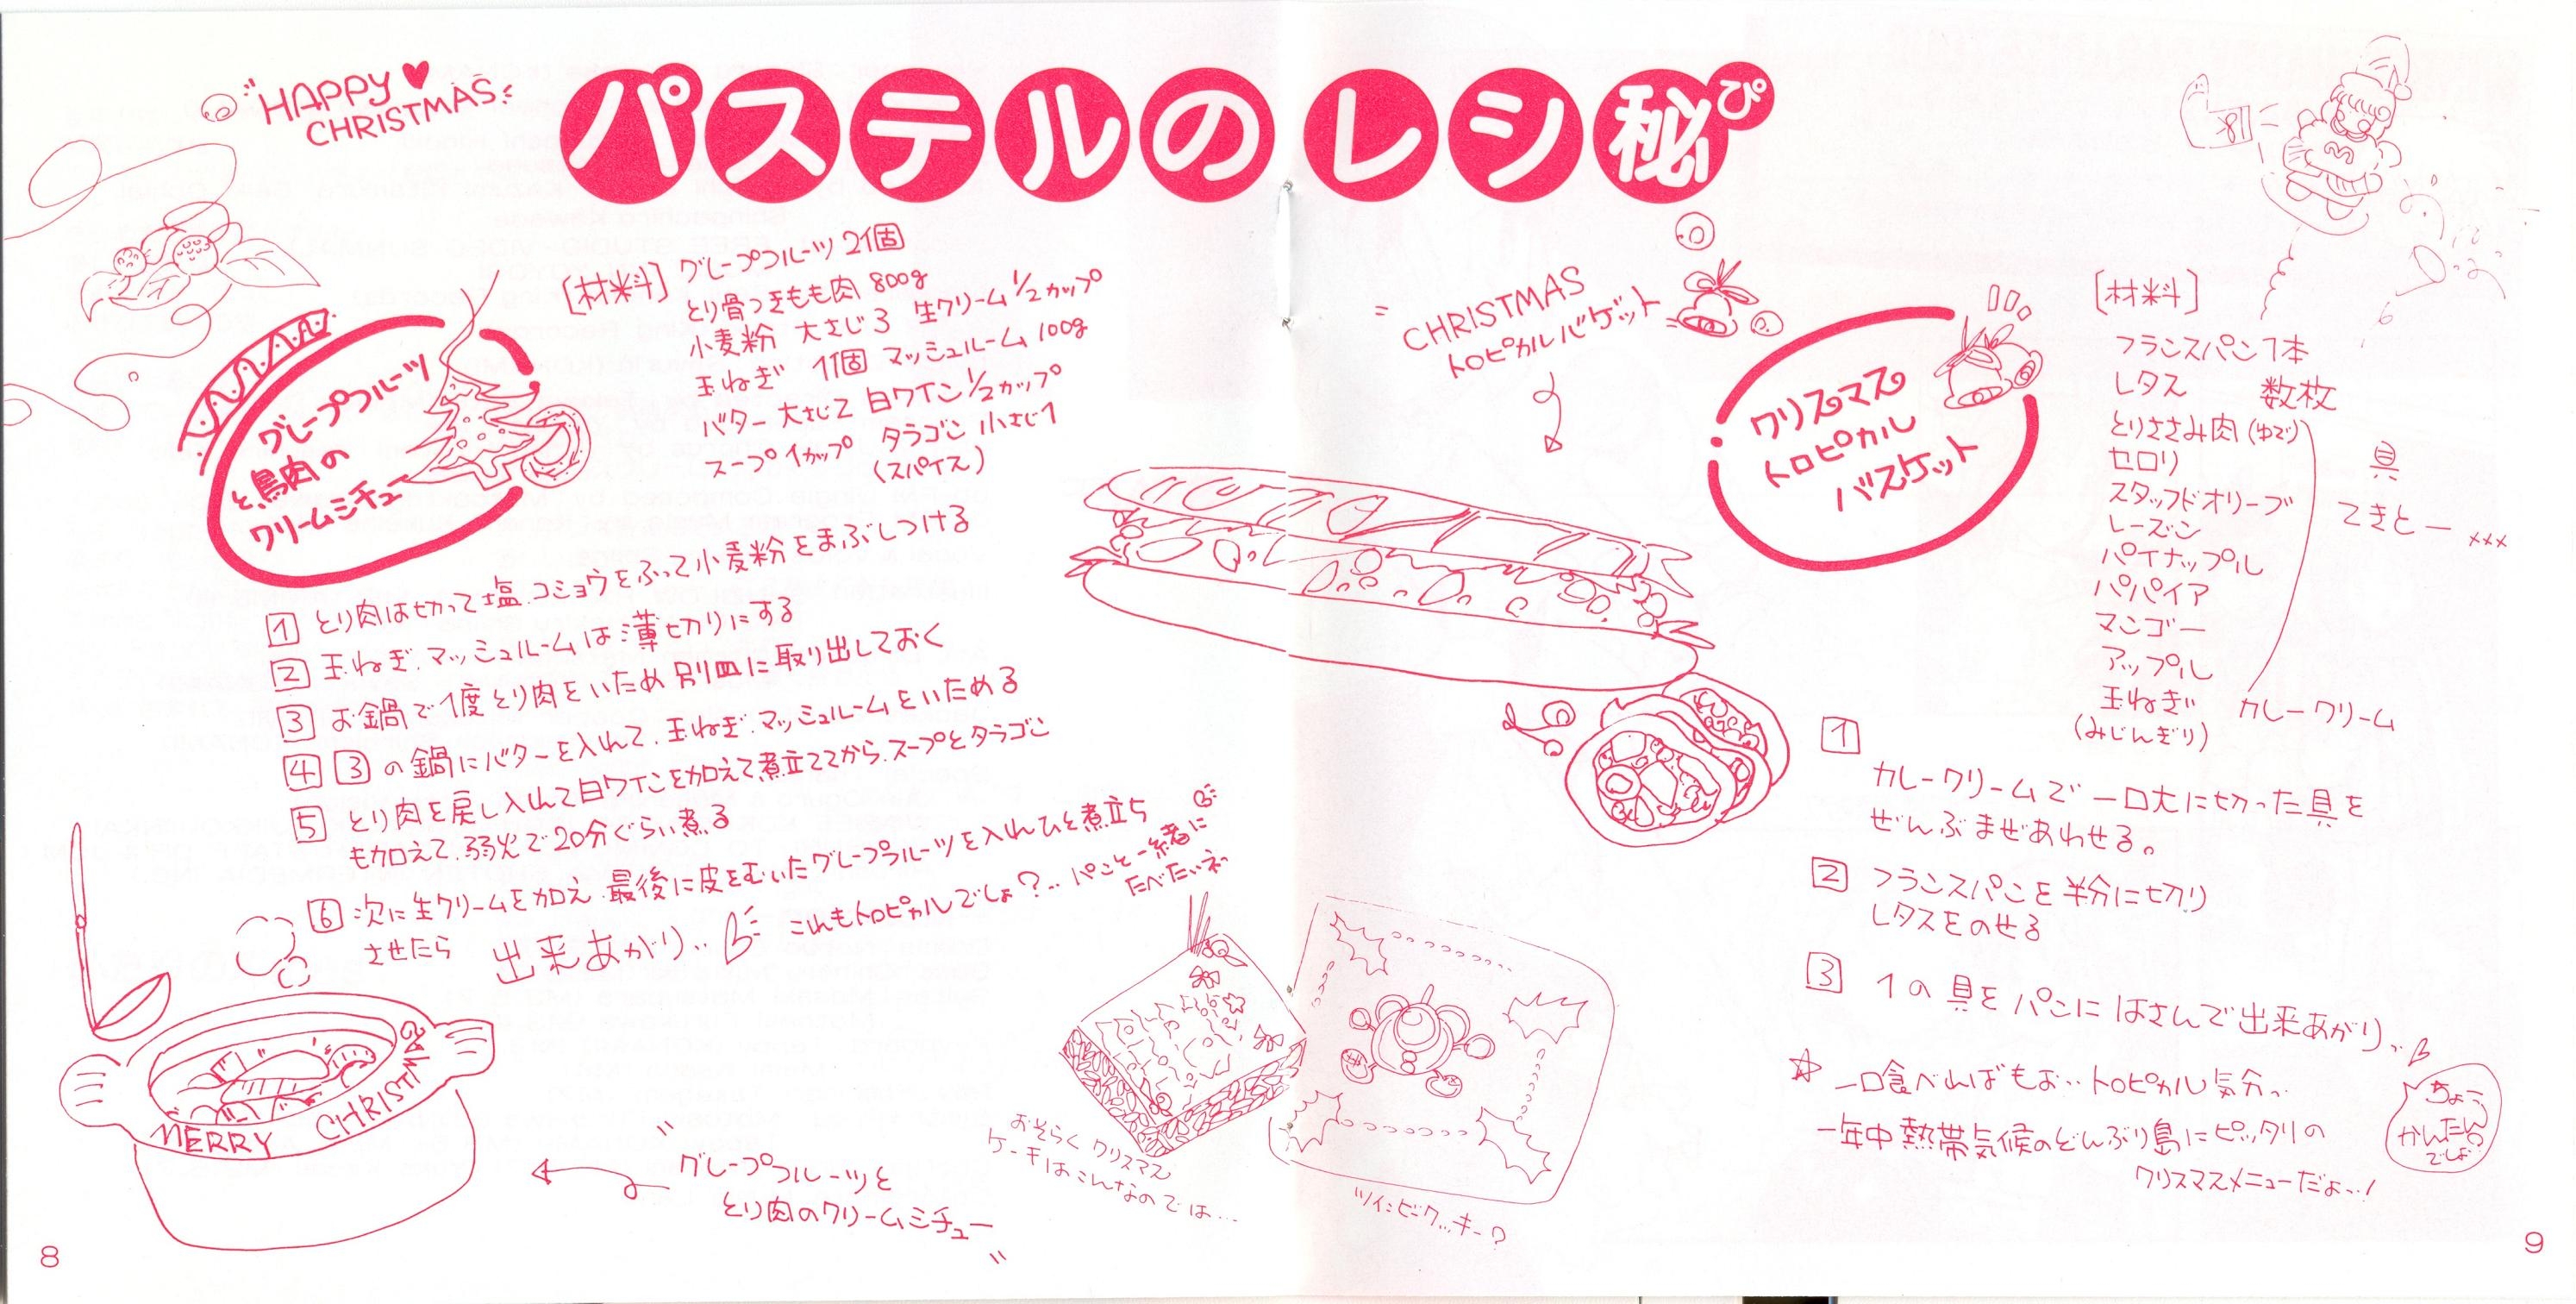 HAPPY♥
CHRISTMAS
パステルのレシ秘
ぴ
グレープフルーツ
と鳥肉の
クリームシチュー
[材料] グレープフルーツ 2個
とり骨つきもも肉 800g
小麦粉 大さじ3 生クリーム 1/2カップ
玉ねぎ 1個 マッシュルーム 100g
バター 大さじ2 白ワイン 1/2カップ
スープ 1カップ タラゴン 小さじ1
(スパイス)
1 とり肉は切って塩.コショウをふって小麦粉をまぶしつける
2 玉ねぎ.マッシュルームは薄切りにする
3 お鍋で1度とり肉をいため別皿に取り出しておく
4 3の鍋にバターを入れて.玉ねぎ.マッシュルームをいためる
5 とり肉を戻し入れて白ワインを加えて煮立ててから.スープとタラゴン
も加えて.弱火で20分ぐらい煮る
6 次に生クリームを加え.最後に皮をむいたグレープフルーツを入れひと煮立ち
させたら 出来あがり..
これもトロピカルでしょ?.. パンと一緒に
たべたいネっ
MERRY CHRISTMAS
"グレープフルーツと
とり肉のクリームシチュー"
おそらく クリスマス
ケーキは こんなのでは...
ツインビークッキー?
CHRISTMAS
トロピカルバゲット
クリスマス
トロピカル
バスケット
[材料]
フランスパン 1本
レタス 数枚
とりささみ肉 (ゆでり)
セロリ
スタッフドオリーブ
レーズン
パイナップル
パパイア
マンゴー
アップル
玉ねぎ
(みじんぎり)
具
てきとー ×××
カレークリーム
1
カレークリームで 一口大に切った具を
ぜんぶまぜあわせる。
2 フランスパンを半分に切り
レタスをのせる
3 1の具をパンに はさんで出来あがり..
☆ 一口食べればもお..トロピカル気分..
一年中熱帯気候のどんぶり島にピッタリの
クリスマスメニューだよっ!
ちょう
かんたん
でしょ?
8
9